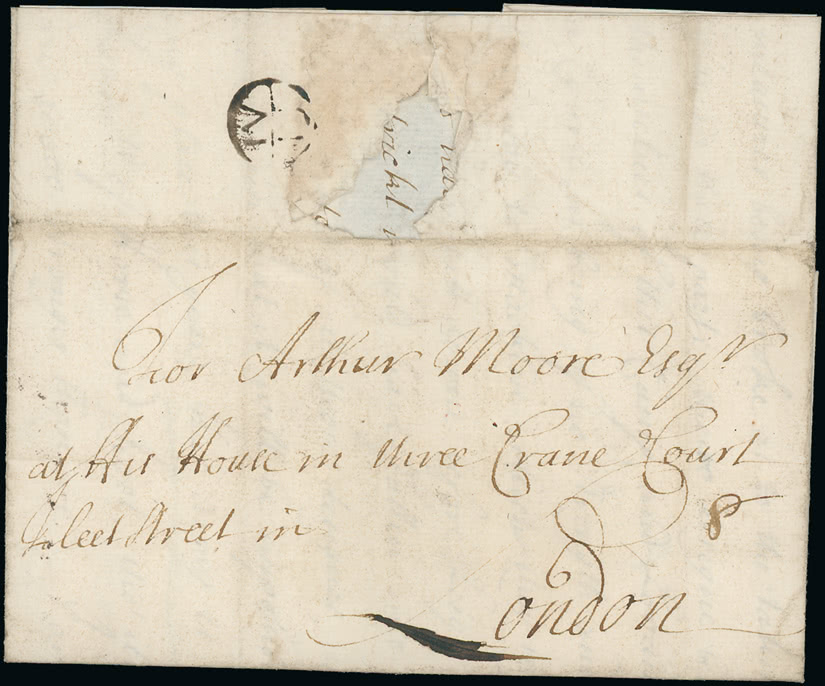 For Arthur Moore Esqr
att His House in three Crane Court
Fleet Street in
8
London